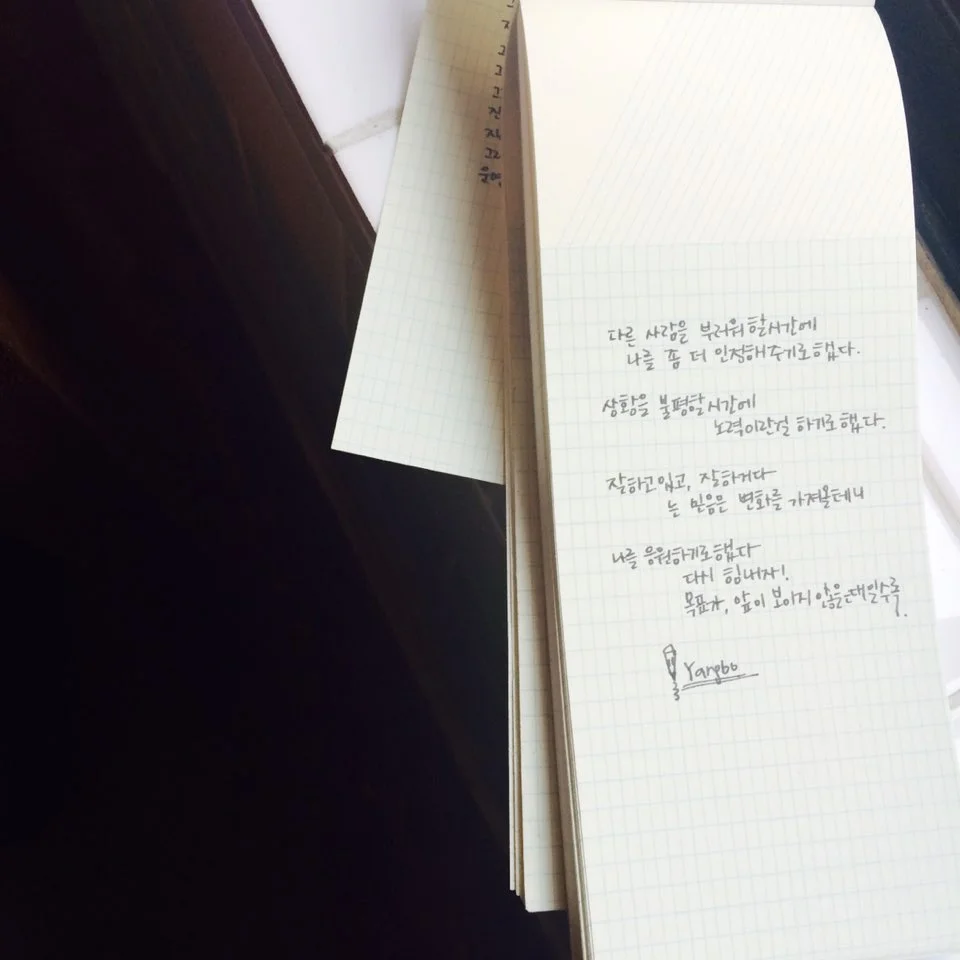 그
지
그
그
그
진
자
그
운영
다른 사람을 부러워 할시간에
나를 좀 더 인정해 주기로했다.
상황을 불평할 시간에
노력이란걸 하기로했다.
잘하고있고, 잘하거다
는 믿음은 변화를 가져올테니
나를 응원하기로했다
다시 힘내자!
목표가, 앞이 보이지 않을때일수록.
Yangbo